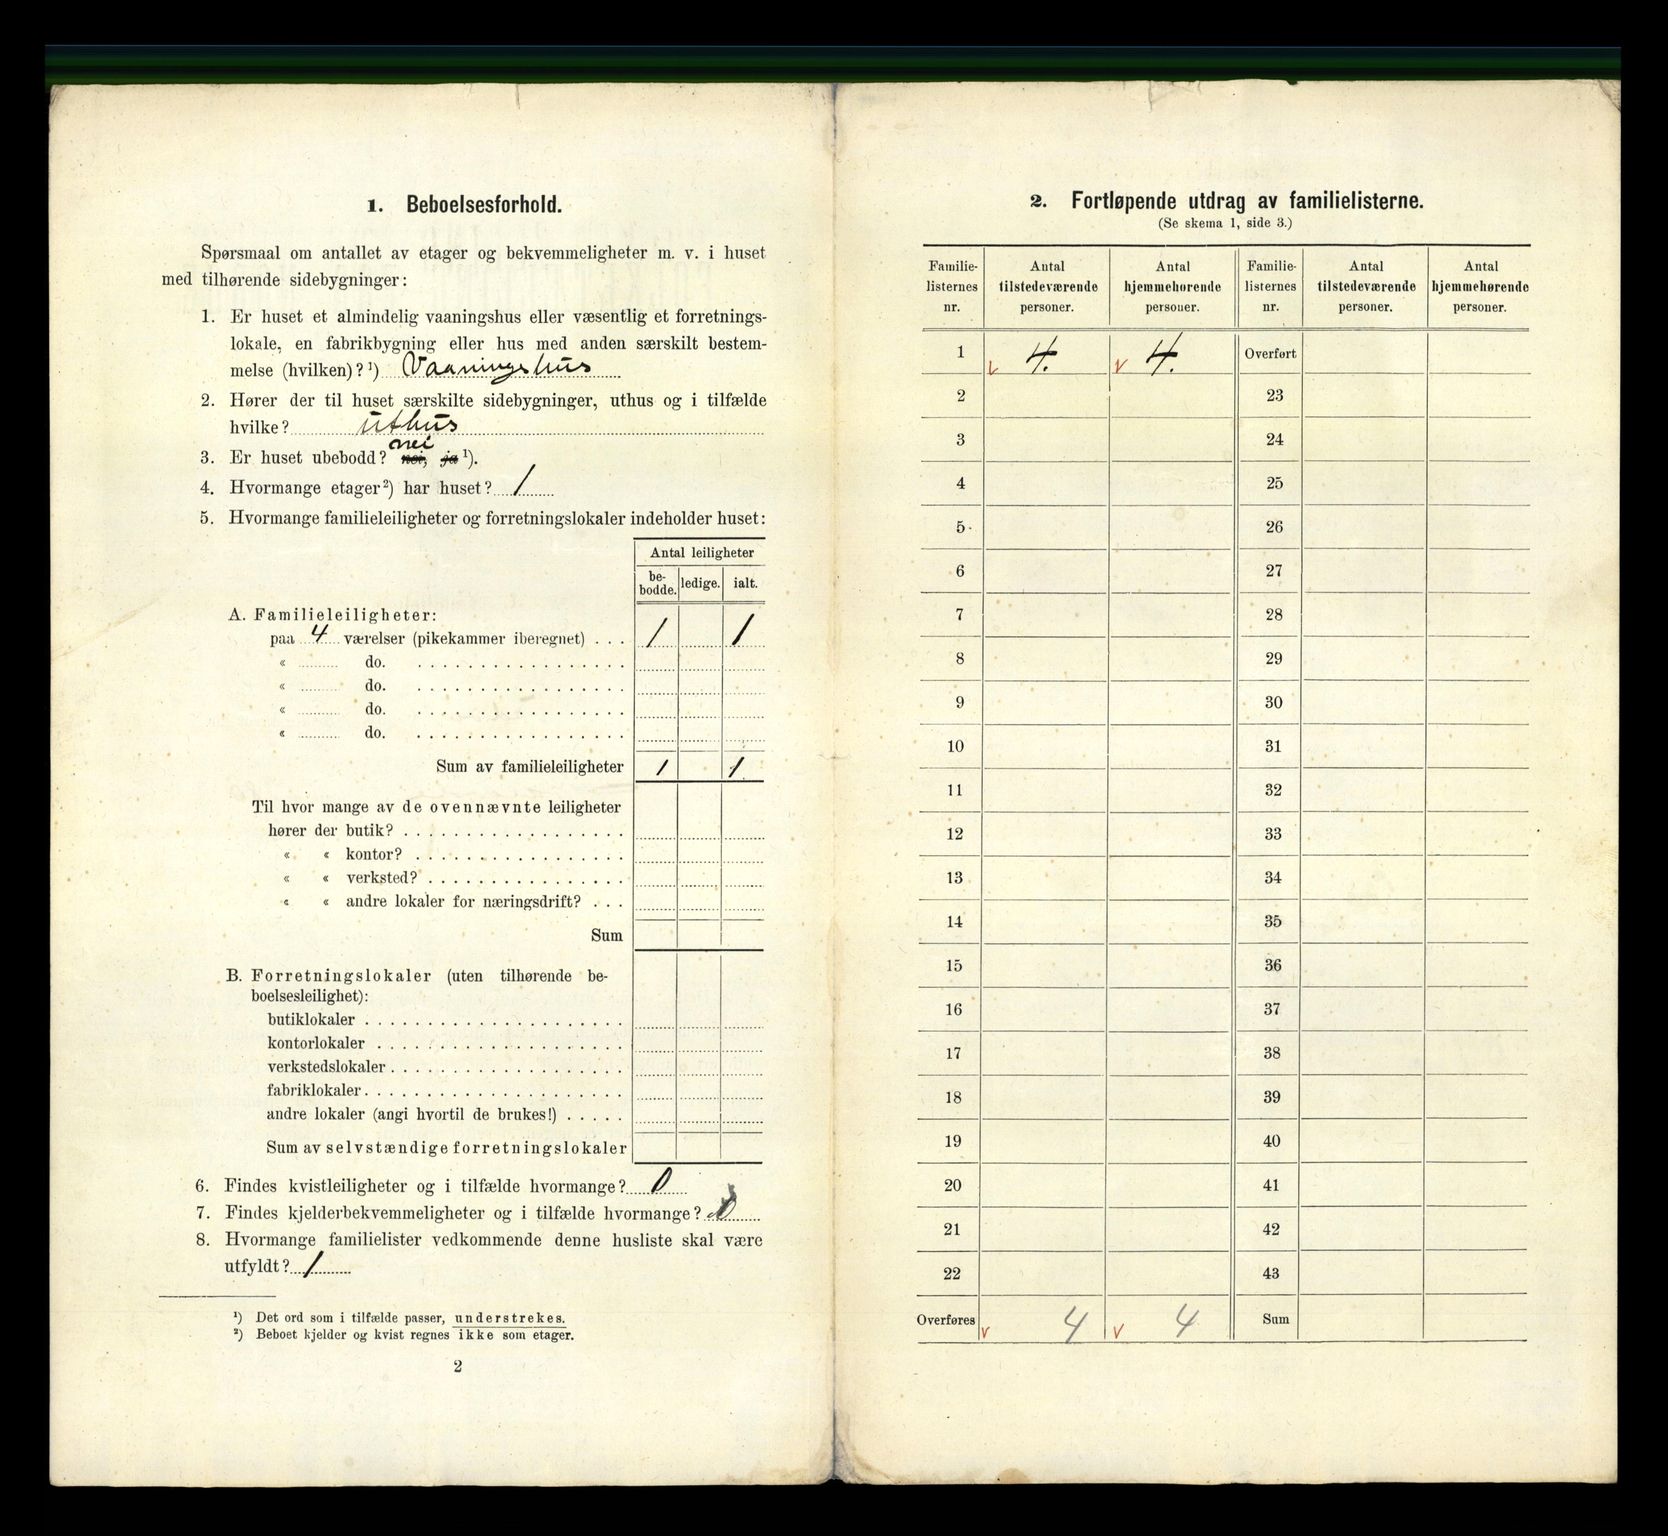 1. Beboelsesforhold.
Spørsmaal om antallet av etager og bekvemmeligheter m. v. i huset
med tilhørende sidebygninger:
1. Er huset et almindelig vaaningshus eller væsentlig et forretnings-
lokale, en fabrikbygning eller hus med anden særskilt bestem-
melse (hvilken)?¹) Vaaningshus
2. Hører der til huset særskilte sidebygninger, uthus og i tilfælde
hvilke? uthus
nei
3. Er huset ubebodd? nei, ja¹).
4. Hvormange etager²) har huset? 1
5. Hvormange familieleiligheter og forretningslokaler indeholder huset:
Antal leiligheter
be-
bodde. ledige. ialt.
A. Familieleiligheter:
paa 4 værelser (pikekammer iberegnet) . . . 1 1
« do.
« do.
« do.
« do.
Sum av familieleiligheter 1 1
Til hvor mange av de ovennævnte leiligheter
hører der butik?
« « kontor?
« « verksted?
« « andre lokaler for næringsdrift?
Sum
B. Forretningslokaler (uten tilhørende be-
boelsesleilighet):
butiklokaler
kontorlokaler
verkstedslokaler
fabriklokaler
andre lokaler (angi hvortil de brukes!)
Sum av selvstændige forretningslokaler
6. Findes kvistleiligheter og i tilfælde hvormange? 0
7. Findes kjelderbekvemmeligheter og i tilfælde hvormange?
8. Hvormange familielister vedkommende denne husliste skal være
utfyldt? 1
¹) Det ord som i tilfælde passer, understrekes.
²) Beboet kjelder og kvist regnes ikke som etager.
2
2. Fortløpende utdrag av familielisterne.
(Se skema 1, side 3.)
Familie- Antal Antal Familie- Antal Antal
listernes tilstedeværende hjemmehørende listernes tilstedeværende hjemmehørende
nr. personer. personer. nr. personer. personer.
1 v 4. v 4. Overført
2 23
3 24
4 25
5 26
6 27
7 28
8 29
9 30
10 31
11 32
12 33
13 34
14 35
15 36
16 37
17 38
18 39
19 40
20 41
21 42
22 43
Overføres v 4 v 4 Sum